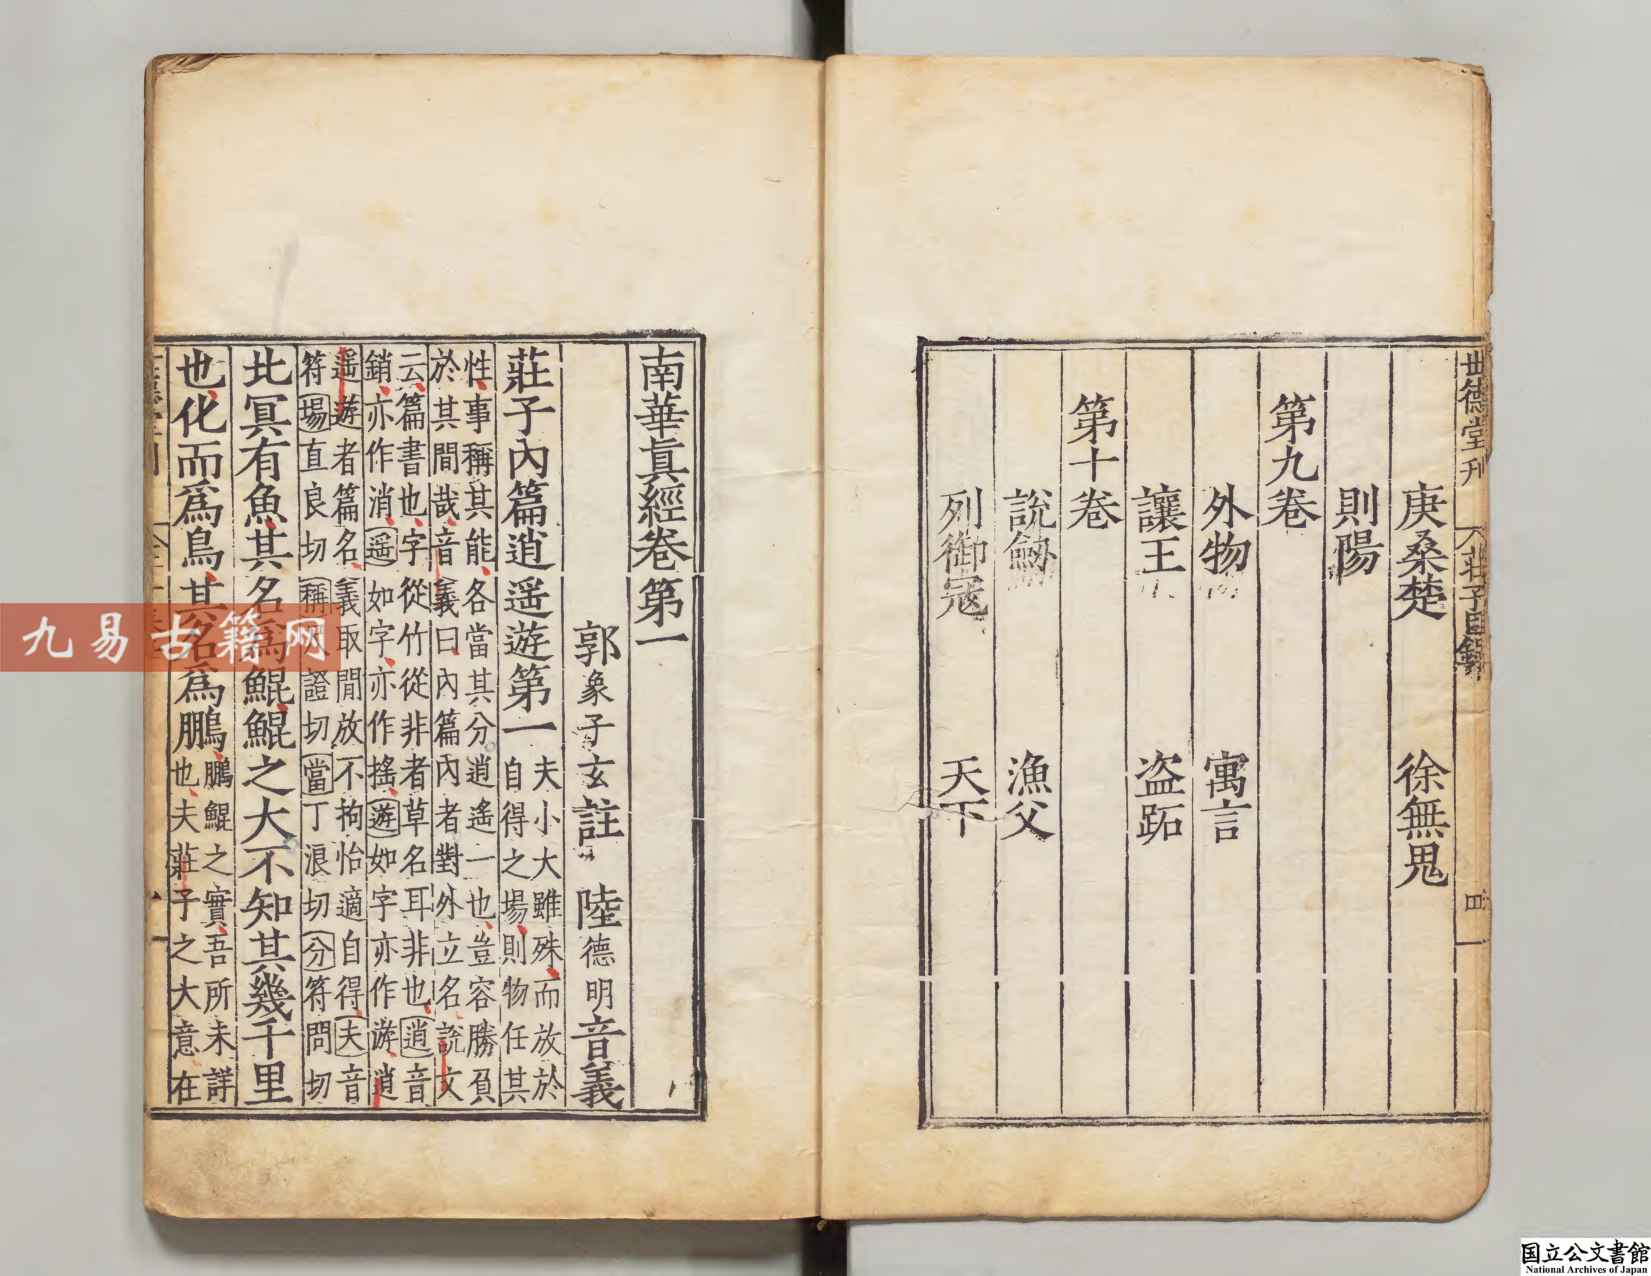 世德堂刊 莊子目錄 四
庚桑楚 徐無鬼
則陽
第九卷
外物 寓言
讓王 盗跖
第十卷
說劒 漁父
列御寇 天下
南華眞經卷第一
郭象子玄註 陸德明音義
莊子內篇逍遥遊第一 夫小大雖殊而放於
自得之場則物任其
性事稱其能各當其分逍遙一也豈容勝負
於其間哉音義曰內篇內者對外立名說文
云篇書也字從竹從非者草名耳非也逍音
銷亦作消遥如字亦作搖遊如字亦作游逍
遥遊者篇名義取閒放不拘怡適自得夫音
符場直良切稱尺證切當丁浪切分符問切
北冥有魚其名爲鯤鯤之大不知其幾千里
也化而爲鳥其名爲鵬 鵬鯤之實吾所未詳
也夫莊子之大意在
九易古籍网
国立公文書館
National Archives of Japan